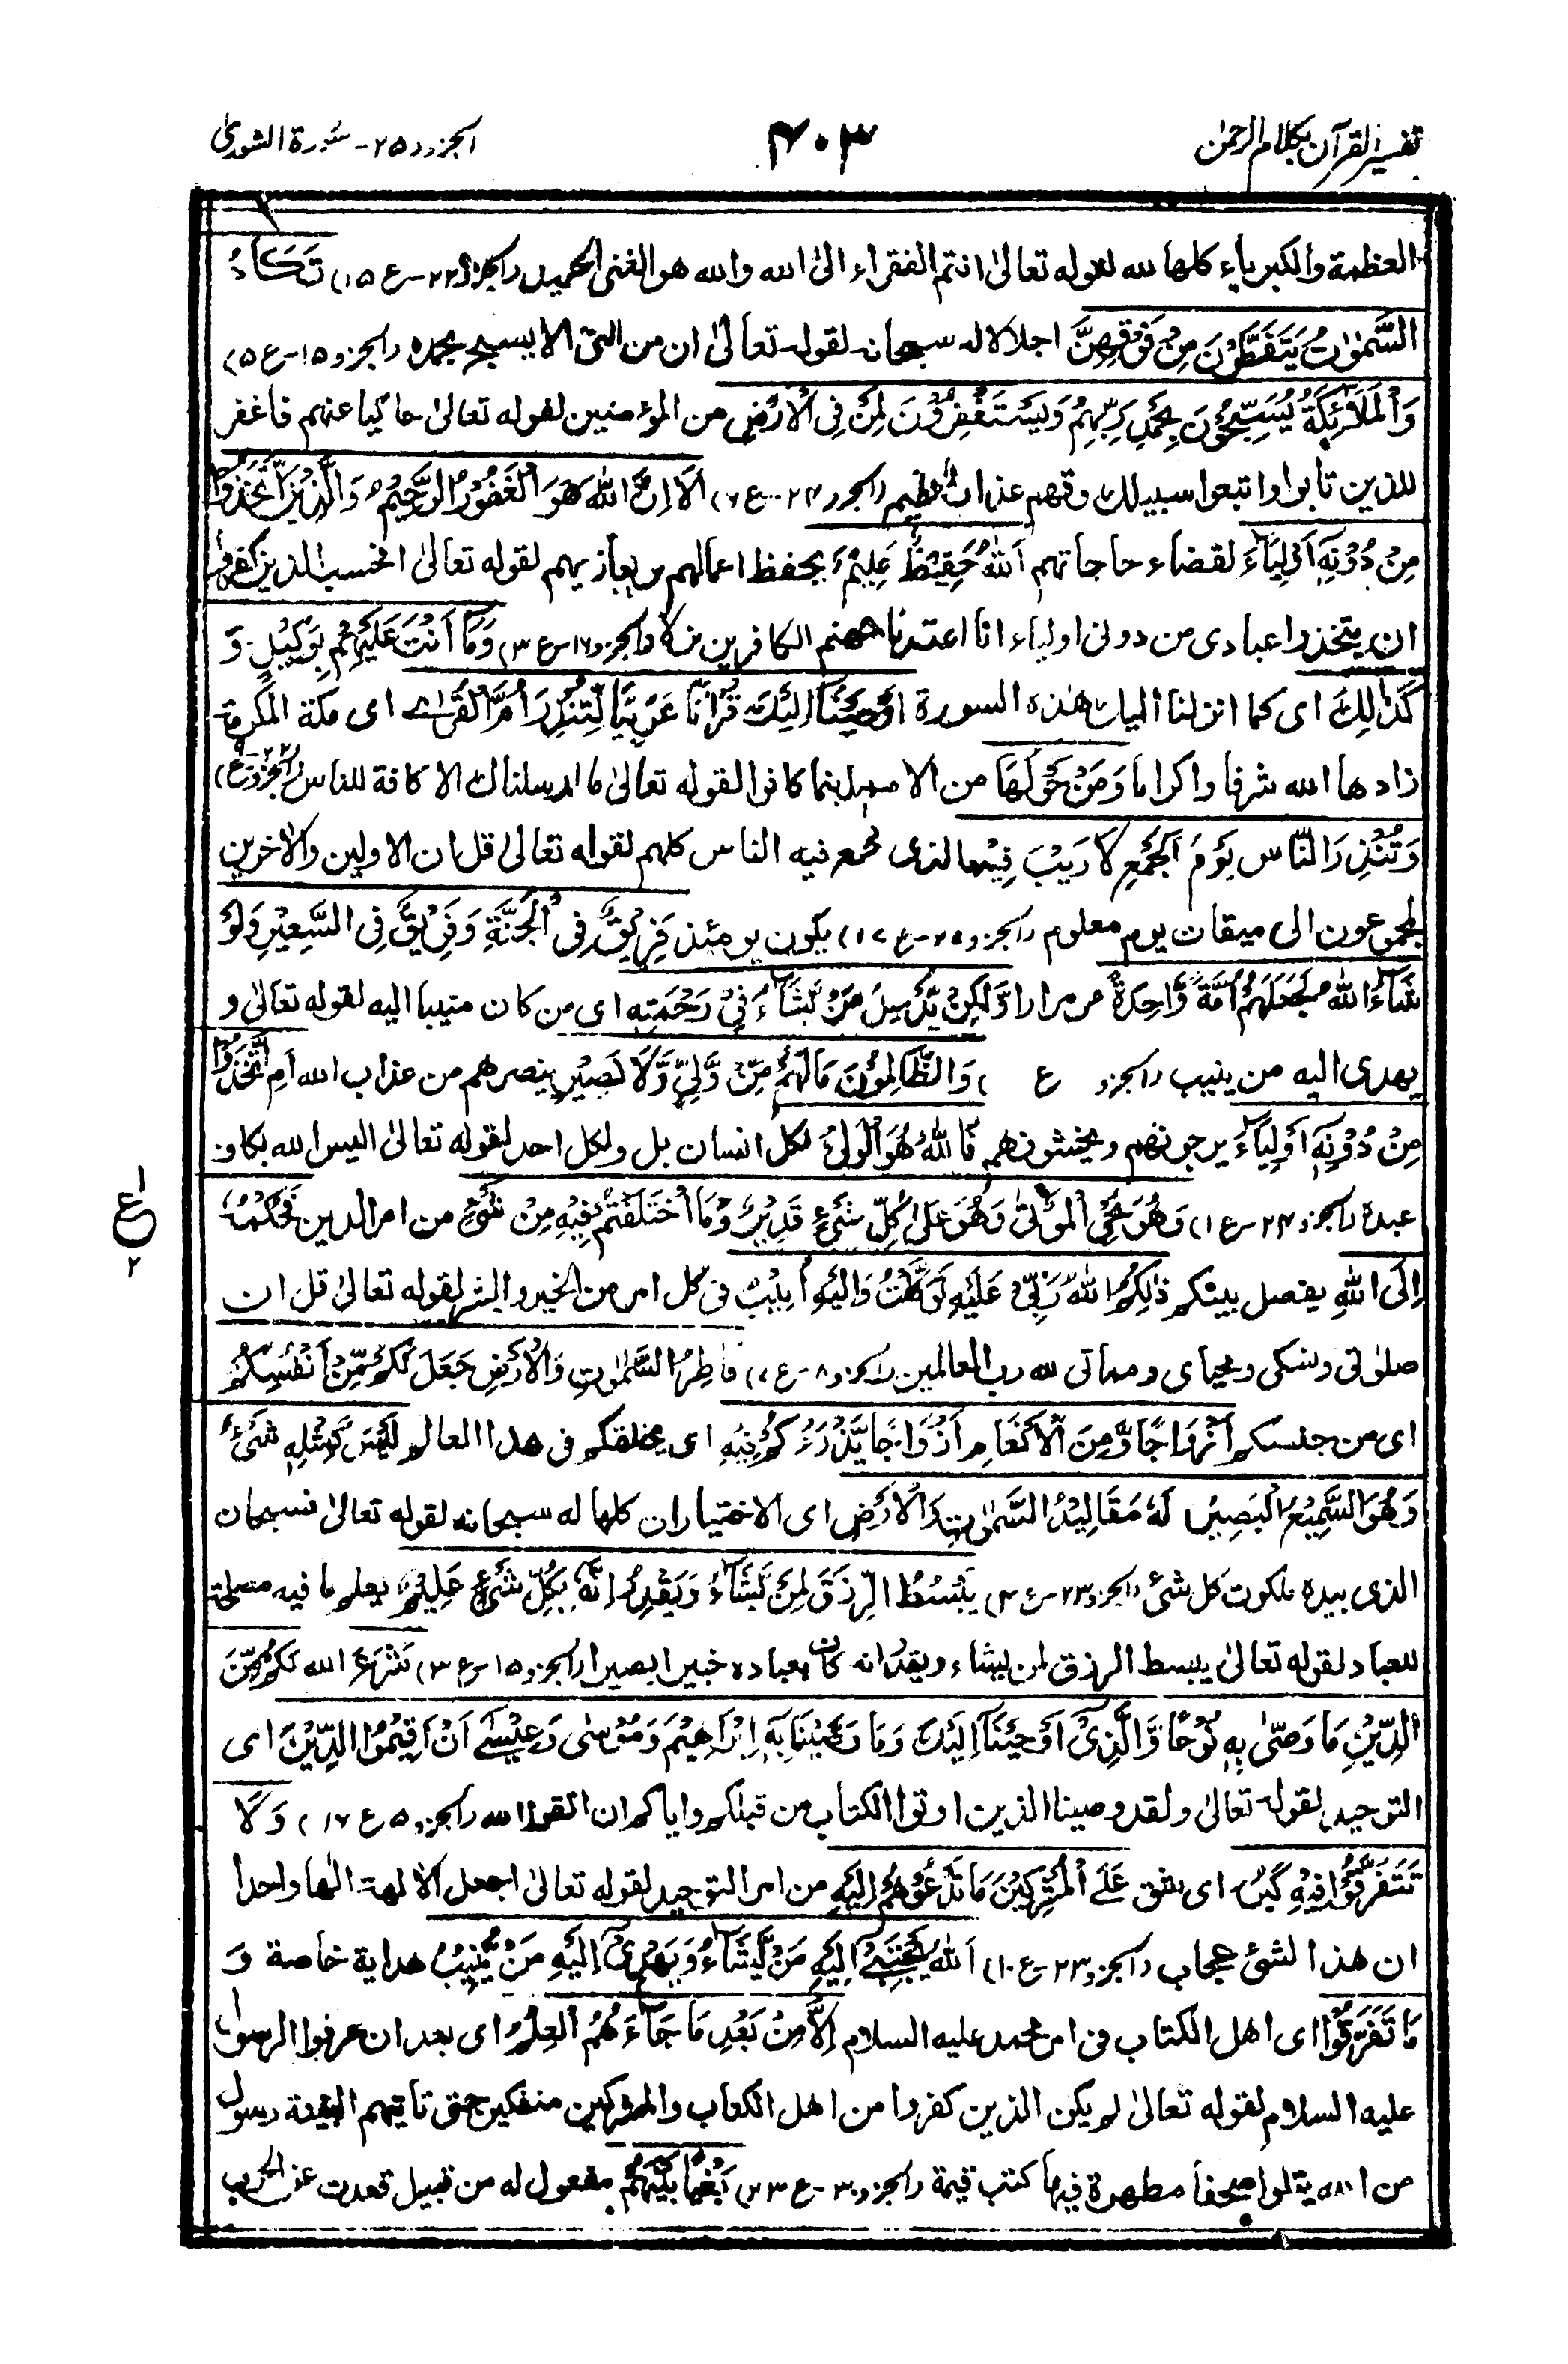 تفسير القرآن بكلام الرحمٰن
۴۰۳
الجزو ۲۵ - سُورة الشورىٰ
العظمة والكبرياء كلها لله لقوله تعالىٰ انتم الفقراء الىٰ الله والله هو الغنى الحميد (الجزو ۲۲ - ع ۱۵) تَكَادُ
السَّمٰوٰتُ يَتَفَطَّرْنَ مِنْ فَوْقِهِنَّ اجلالا له سبحانه لقوله تعالىٰ ان من شئ الا يسبح بحمده (الجزو ۱۵ - ع ۵)
وَالْمَلَآئِكَةُ يُسَبِّحُوْنَ بِحَمْدِ رَبِّهِمْ وَيَسْتَغْفِرُوْنَ لِمَنْ فِى الْاَرْضِ من المؤمنين لقوله تعالىٰ حاكيا عنهم فاغفر
للذين تابوا واتبعوا سبيلك وقهم عذاب (الجزو ۲۴ - ع ۶) اَلَا اِنَّ اللهَ هُوَ الْغَفُوْرُ الرَّحِيْمُ وَالَّذِيْنَ اتَّخَذُوْا
مِنْ دُوْنِهٖٓ اَوْلِيَآءَ لقضاء حاجاتهم اَللهُ حَفِيْظٌ عَلَيْهِمْ يحفظ اعمالهم بل يجازيهم لقوله تعالىٰ افحسب الذين كفروا
ان يتخذوا عبادى من دونى اولياء انا اعتدنا جهنم للكافرين نزلا (الجزو ۱۶ - ع ۳) وَمَآ اَنْتَ عَلَيْهِمْ بِوَكِيْلٍ وَ
كَذٰلِكَ اى كما انزلنا اليك هٰذه السورة اَوْحَيْنَآ اِلَيْكَ قُرْاٰنًا عَرَبِيًّا لِّتُنْذِرَ اُمَّ الْقُرٰى اى مكة المكرمة
زادها الله شرفا واكراما وَمَنْ حَوْلَهَا من الامم اينما كانوا لقوله تعالىٰ ما ارسلناك الا كافة للناس (الجزو ۲۲ - ع ۹)
وَتُنْذِرَ النَّاس يَوْمَ الْجَمْعِ لَا رَيْبَ فِيْهِ الذى يجمع فيه الناس كلهم لقوله تعالىٰ قل ان الاولين والاٰخرين
لمجموعون الى ميقات يوم معلوم (الجزو ۲۷ - ع ۱۵) يكون يومئذ فَرِيْقٌ فِى الْجَنَّةِ وَفَرِيْقٌ فِى السَّعِيْرِ وَلَوْ
شَآءَ اللهُ لَجَعَلَهُمْ اُمَّةً وَّاحِدَةً مر مرارا وَّلٰكِنْ يُّدْخِلُ مَنْ يَّشَآءُ فِىْ رَحْمَتِهٖ اى من كان منيبا اليه لقوله تعالىٰ و
يهدى اليه من ينيب (الجزو ع ) وَالظّٰلِمُوْنَ مَا لَهُمْ مِّنْ وَّلِىٍّ وَّلَا نَصِيْرٍ ينصرهم من عذاب الله اَمِ اتَّخَذُوْا
مِنْ دُوْنِهٖٓ اَوْلِيَآءَ يرجونهم ويخشونهم فَاللهُ هُوَ الْوَلِىُّ لكل انسان بل ولكل احد لقوله تعالىٰ اليس الله بكاف
عبده (الجزو ۲۴ - ع ۱) وَهُوَ يُحْىِ الْمَوْتٰى وَهُوَ عَلىٰ كُلِّ شَىْءٍ قَدِيْرٌ وَمَا اخْتَلَفْتُمْ فِيْهِ مِنْ شَىْءٍ من امر الدين فَحُكْمُهٗٓ
ع ۱ ۲
اِلَى اللهِ يفصل بينكم ذٰلِكُمُ اللهُ رَبِّىْ عَلَيْهِ تَوَكَّلْتُ وَاِلَيْهِ اُنِيْبُ فى كل امر من الخير والشر لقوله تعالىٰ قل ان
صلوٰتى ونسكى ومحياى ومماتى لله رب العالمين (الجزو ۸ - ع ۷) فَاطِرُ السَّمٰوٰتِ وَالْاَرْضِ جَعَلَ لَكُمْ مِّنْ اَنْفُسِكُمْ
اى من جنسكم اَزْوَاجًا وَّمِنَ الْاَنْعَامِ اَزْوَاجًا يَّذْرَؤُكُمْ فِيْهِ اى يخلقكم فى هذا العالم لَيْسَ كَمِثْلِهٖ شَىْءٌ
وَهُوَ السَّمِيْعُ الْبَصِيْرُ لَهٗ مَقَالِيْدُ السَّمٰوٰتِ وَالْاَرْضِ اى الاختياران كلها له سبحانه لقوله تعالىٰ فسبحان
الذى بيده ملكوت كل شئ (الجزو ۲۳ - ع ۴) يَبْسُطُ الرِّزْقَ لِمَنْ يَّشَآءُ وَيَقْدِرُ اِنَّهٗ بِكُلِّ شَىْءٍ عَلِيْمٌ يعلم ما فيه مصلحة
للعباد لقوله تعالىٰ يبسط الرزق لمن يشاء ويقدر انه كان بعباده خبيرا بصيرا (الجزو ۱۵ - ع ۳) شَرَعَ الله لَكُمْ مِّنَ
الدِّيْنِ مَا وَصّٰى بِهٖ نُوْحًا وَّالَّذِىْٓ اَوْحَيْنَآ اِلَيْكَ وَمَا وَصَّيْنَا بِهٖٓ اِبْرَاهِيْمَ وَمُوْسٰى وَعِيْسٰٓى اَنْ اَقِيْمُوا الدِّيْنَ اى
التوحيد لقوله تعالىٰ ولقد وصينا الذين اوتوا الكتاب من قبلكم واياكم ان اتقوا الله (الجزو ۵ ع ۱۶) وَلَا
تَتَفَرَّقُوْا فِيْهِ كَبُرَ اى شق عَلَى الْمُشْرِكِيْنَ مَا تَدْعُوْهُمْ اِلَيْهِ من امر التوحيد لقوله تعالىٰ اجعل الاٰلهة الٰها واحدا
ان هذا لشئ عجاب (الجزو ۲۳ - ع ۱۰) اَللهُ يَجْتَبِىْٓ اِلَيْهِ مَنْ يَّشَآءُ وَيَهْدِىْٓ اِلَيْهِ مَنْ يُّنِيْبُ هداية خاصة وَ
مَا تَفَرَّقُوْٓا اى اهل الكتاب فى امر محمد عليه السلام اِلَّا مِنْ بَعْدِ مَا جَآءَهُمُ الْعِلْمُ اى بعد ان عرفوا الرسول
عليه السلام لقوله تعالىٰ لم يكن الذين كفروا من اهل الكتاب والمشركين منفكين حتى تاتيهم البينة رسول
من الله يتلوا صحفا مطهرة فيها كتب قيمة (الجزو ۳۰ - ع ۲۳) بَغْيًا بَيْنَهُمْ مفعول له من قبيل قعدت عن الحرب